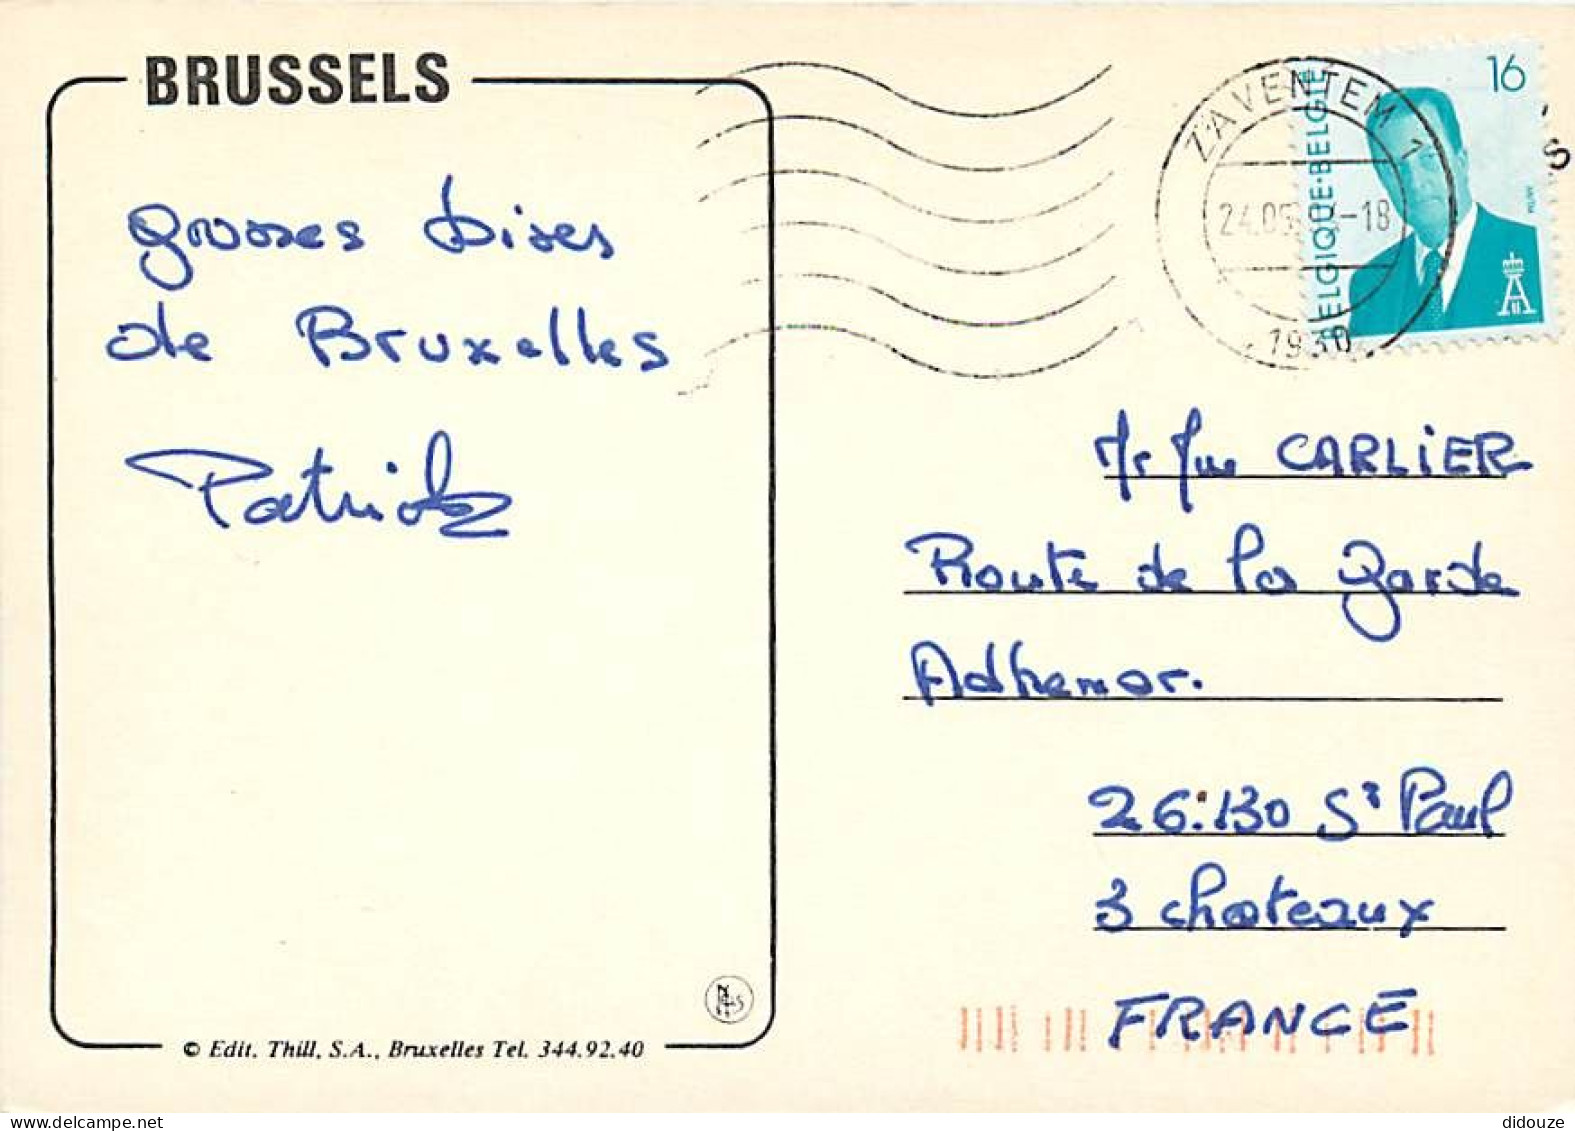 BRUSSELS
grosses bises
de Bruxelles
Patrick
© Edit. Thill, S.A., Bruxelles Tel. 344.92.40
ZAVENTEM 1
24.05 -18
1930
16
BELGIQUE·BELGIË
Mr Mme CARLIER
Route de la Garde
Adhemar.
26.130 St Paul
3 chateaux
FRANCE
didouze